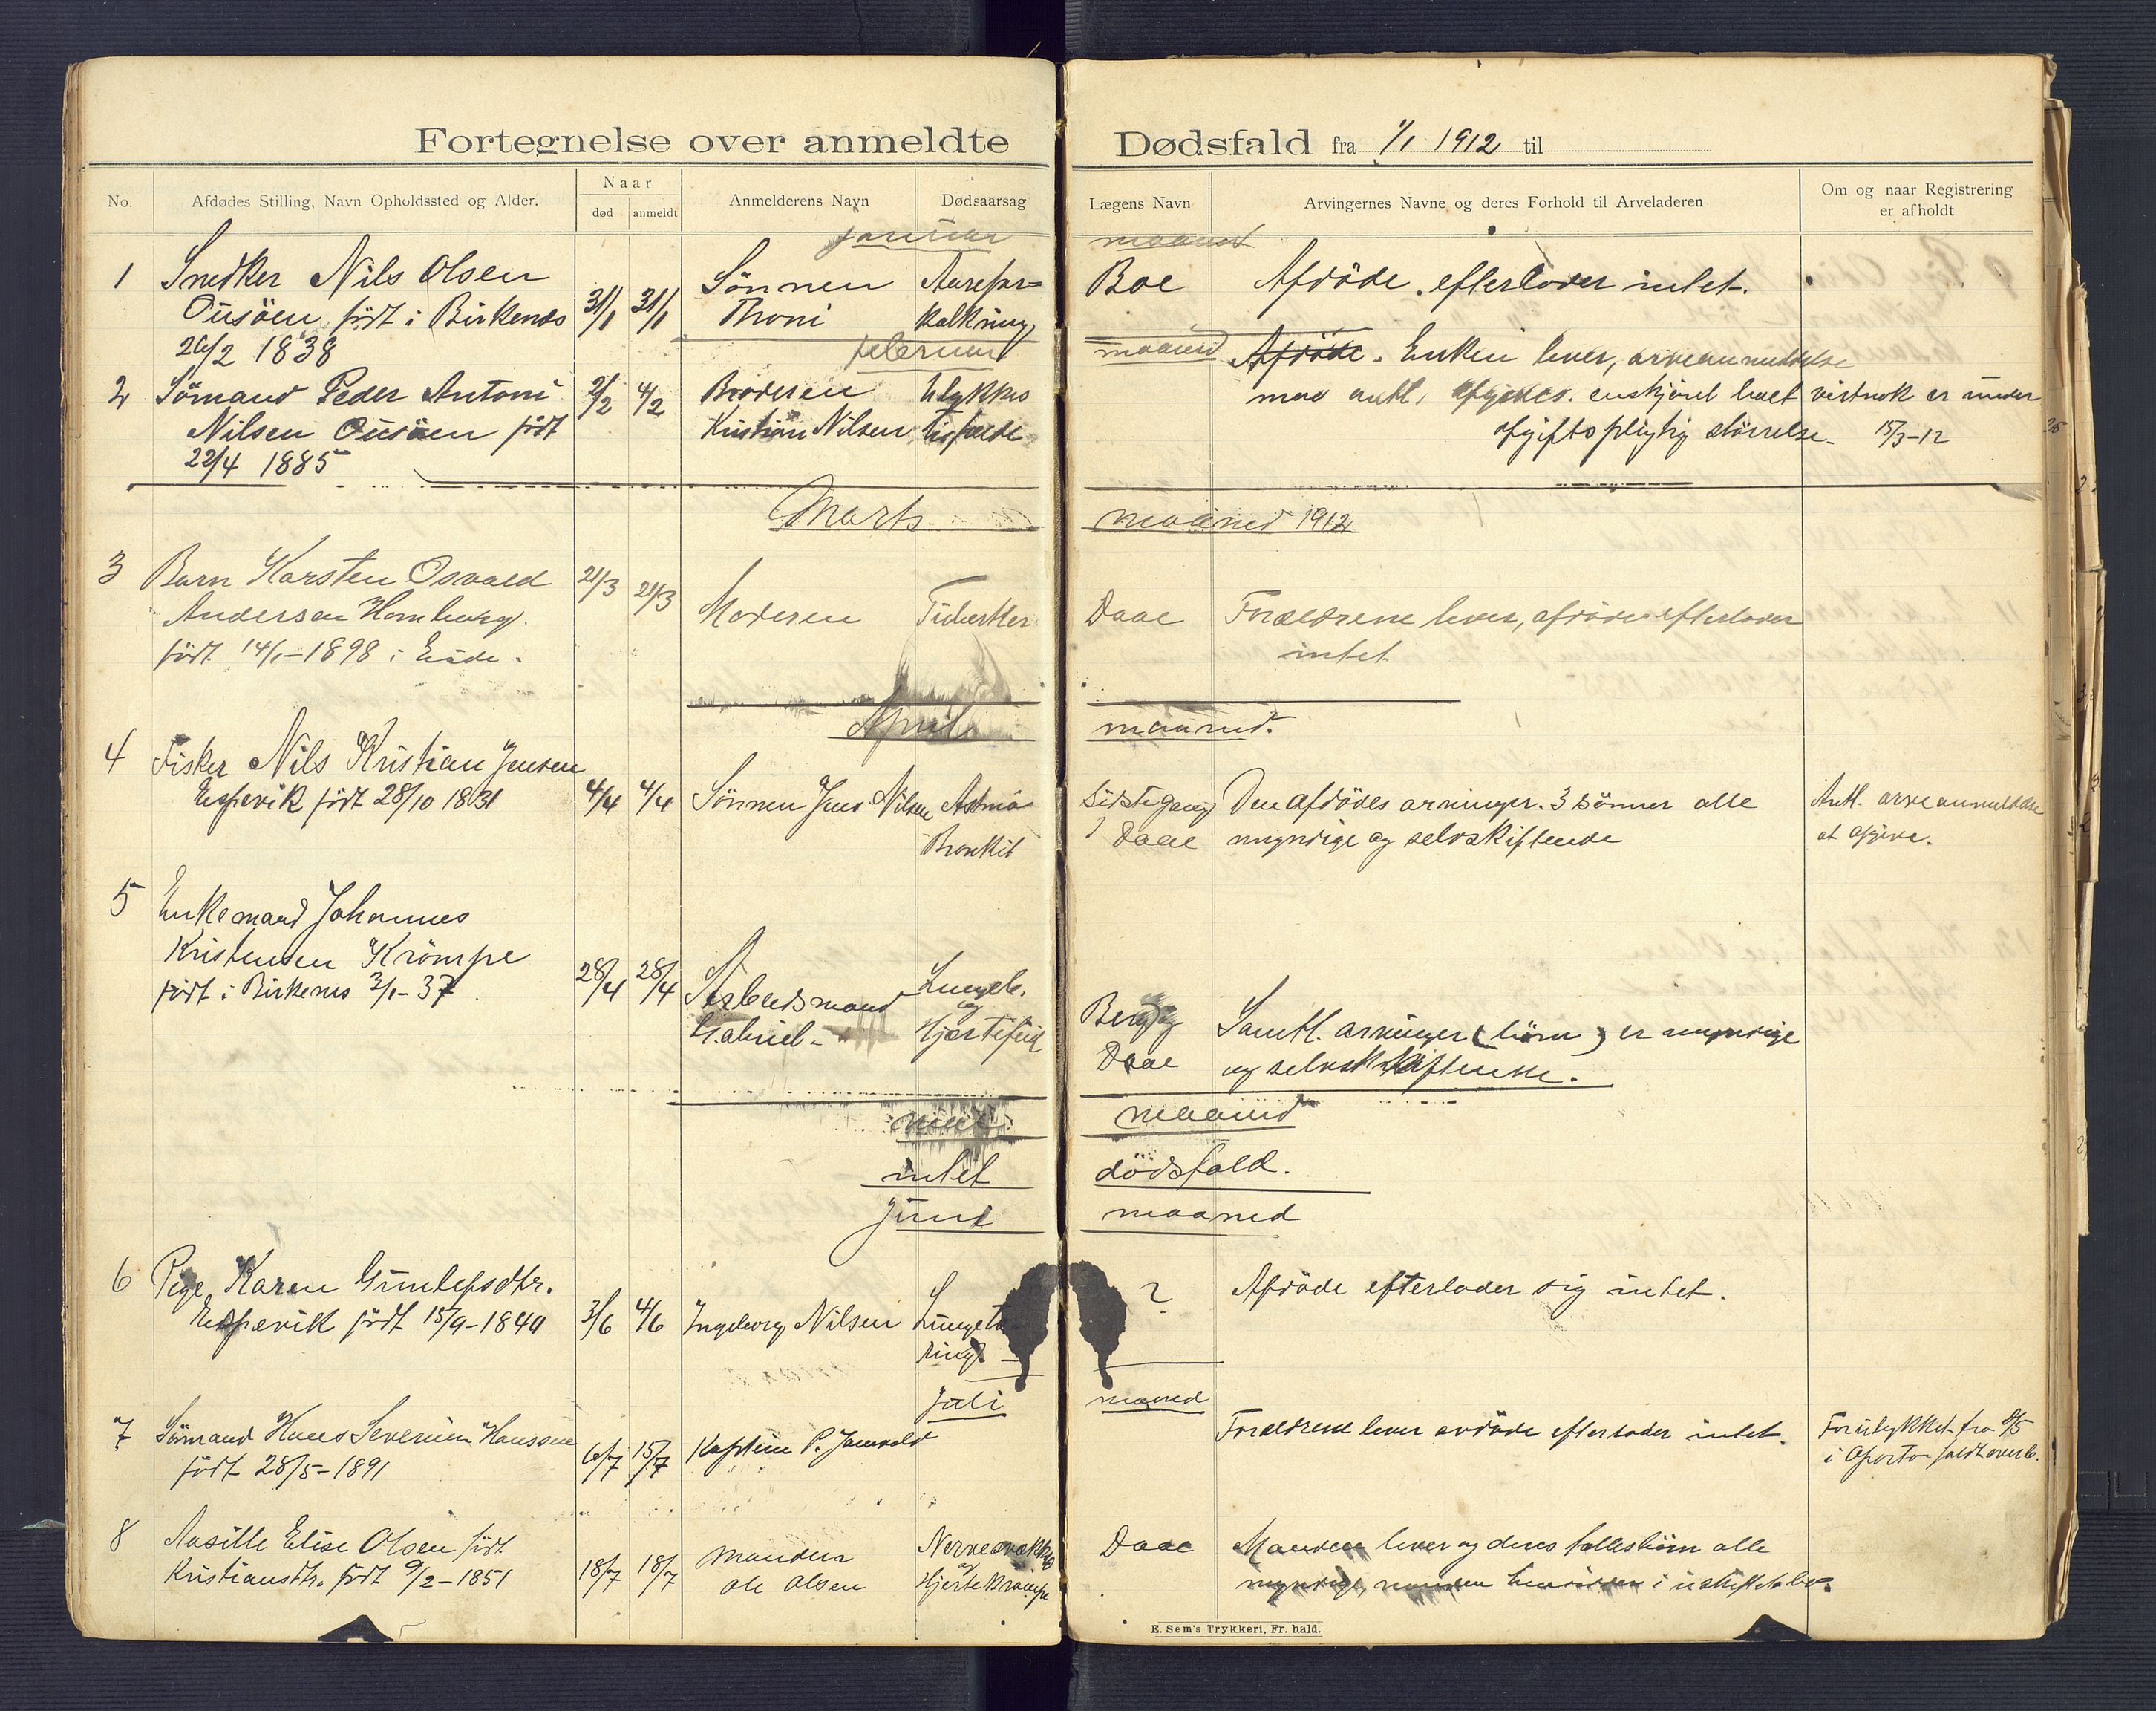 Fortegnelse over anmeldte Dødsfald fra 1/1 1912 til
No.
Afdødes Stilling, Navn Opholdssted og Alder.
Naar
død
anmeldt
Anmelderens Navn
Dødsaarsag
Lægens Navn
Arvingernes Navne og deres Forhold til Arveladeren
Om og naar Registrering
er afholdt
januar maaned
1 Snedker Nils Olsen
Ousöen födt i Birkenes
26/2 1838
31/1 31/1
Sönnen
Throni
Aarefor-
kalkning
Boe
Afdöde efterlader intet.
februar maaned
2 Sömand Peder Antoni
Nilsen Ousöen födt
22/4 1885
2/2 4/2
Broderen
Kristian Nilsen
Ulykkes
tilfælde
Afdöde. Enken lever, arveanmeldelse
maa antl. afgives. enskjönt boet vistnok er under
afgiftspligtig störrelse. 15/3-12
Marts maaned 1912
3 Barn Karsten Osvald
Andersen Homborg.
födt 14/1-1898 i Eide.
21/3 21/3
Moderen
Tuberkler
Daae
Forældrene lever, afdöde efterlader
intet
April maaned.
4 Fisker Nils Kristian Jensen
Espevik födt 28/10 1831
4/4 4/4
Sönnen Jens Nilsen
Astma
Bronkit
Sidste gang
Daae
Den afdödes arvinger. 3 sönner alle
myndige og selvskiftende
Antl. arveanmeldelse
at afgive.
5 Enkemand Johannes
Kristensen Krömpe
födt i Birkenes 3/1-37
28/4 28/4
Gabriel
Lungeb.
og
Hjertefeil
Berg og
Daae
Samtl. arvinger (börn) er myndige
og selvskiftende.
mai maaned
intet dödsfald.
Juni maaned
6 Pige Karen Gunlefsdtr.
Espevik födt 15/9-1844
3/6 4/6
Ingeborg Nilsen
?
Afdöde efterlader sig intet.
Juli maaned
7 Sömand Hans Severin Hanssen
födt 28/5-1891
6/7 15/7
Kaptein P.
Forældrene lever avdöde efterlader intet.
Forulykket fra
i Oporto faldt overb.
8 Aasille Elise Olsen födt
Kristiansdtr. födt 9/2-1851
18/7 18/7
Manden
Ole Olsen
Nervesvækkelse
og
Hjertekrampe
Daae
Manden lever og deres fællesbörn alle
myndige, manden i uskiftet bo.
E. Sem's Trykkeri, Fr. hald.